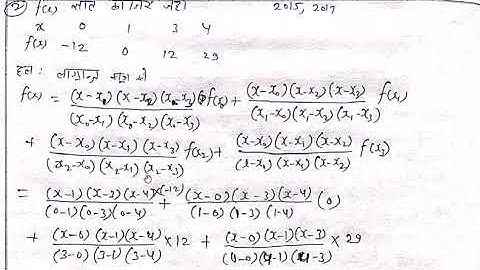 ② f(x) ज्ञात कीजिए जहाँ 2015, 2017
x 0 1 3 4
f(x) -12 0 12 29
हल: लाग्रान्ज सूत्र से
f(x) = (x-x₁)(x-x₂)(x-x₃)/(x₀-x₁)(x₀-x₂)(x₀-x₃) f(x₀) + (x-x₀)(x-x₂)(x-x₃)/(x₁-x₀)(x₁-x₂)(x₁-x₃) f(x₁)
+ (x-x₀)(x-x₁)(x-x₃)/(x₂-x₀)(x₂-x₁)(x₂-x₃) f(x₂) + (x-x₀)(x-x₁)(x-x₂)/(x-x₀)(x-x₁)(x-x₂) f(x₃)
= (x-1)(x-3)(x-4)×(-12)/(0-1)(0-3)(0-4) + (x-0)(x-3)(x-4)/(1-0)(1-3)(1-4) (0)
+ (x-0)(x-1)(x-4)/(3-0)(3-1)(3-4) ×12 + (x-0)(x-1)(x-3)/(4-0)(4-1)(4-3) ×29